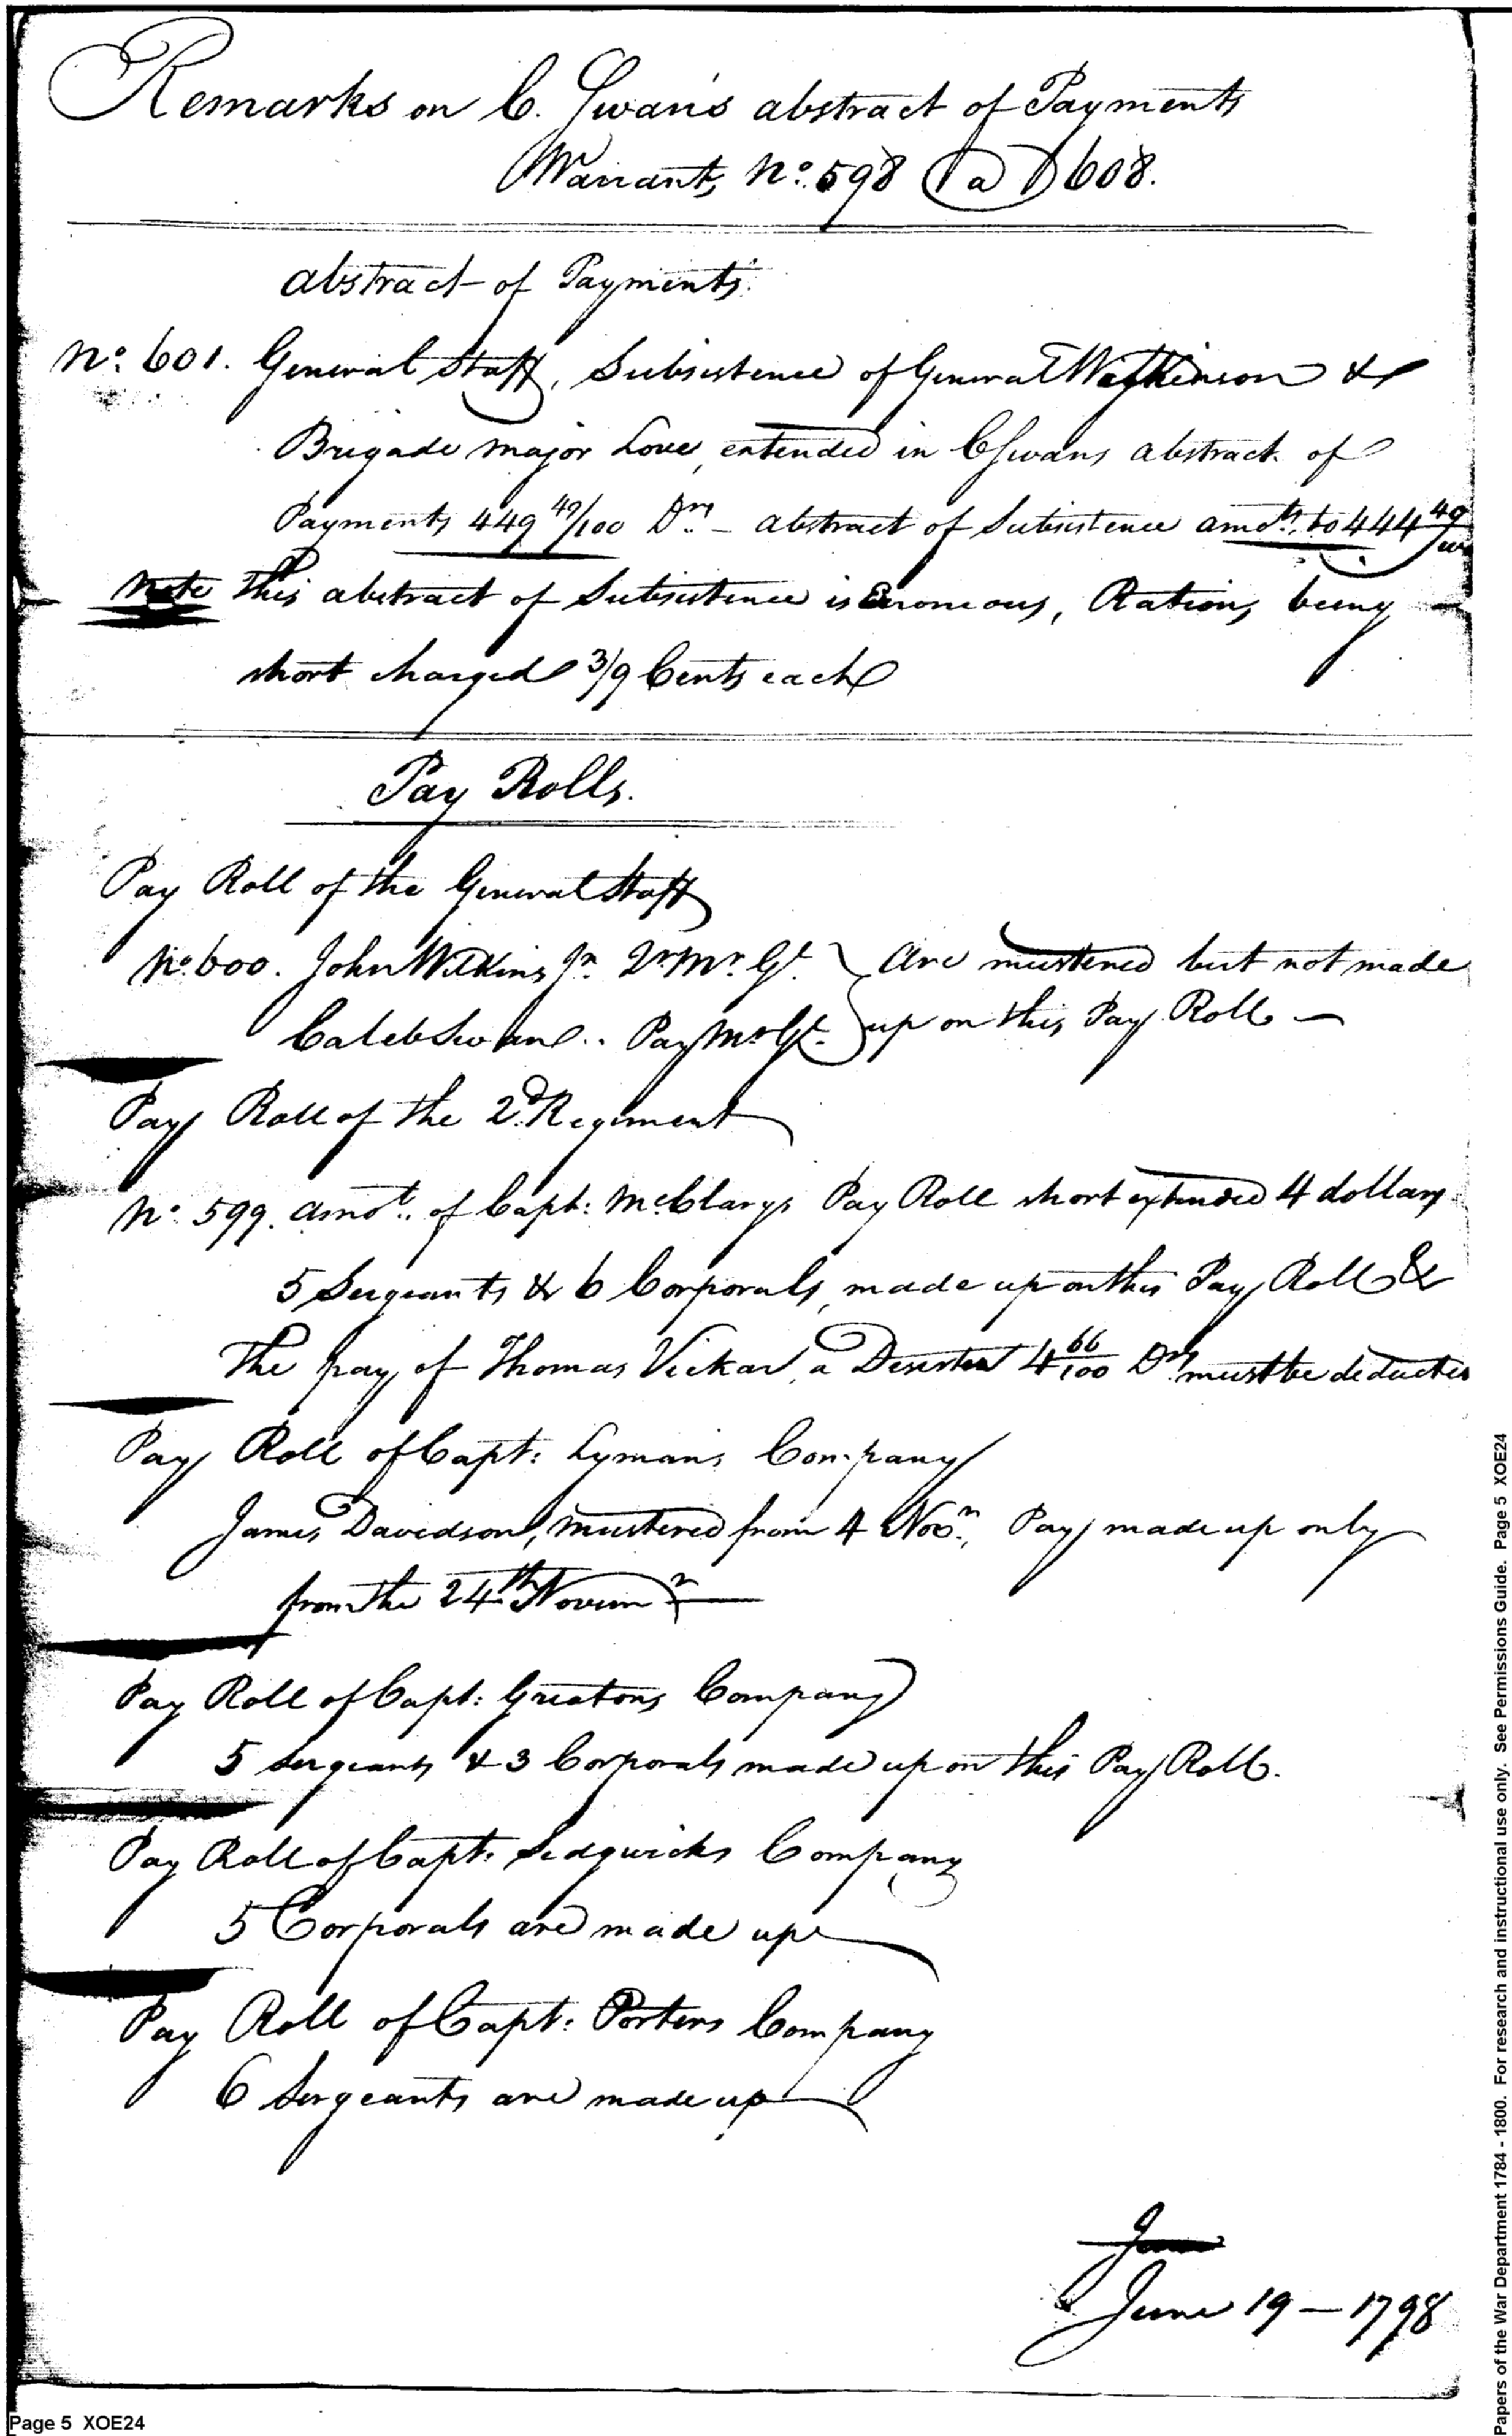 Remarks on C. Swan's abstract of Payments
Warrants, No. 598 @ 608.
abstract of Payments.
No. 601. General Staff, Subsistence of General Wilkinson &
Brigade major Love, extended in C Swans abstract of
Payments 449 49/100 Drs. - abstract of Subsistence amots. to 444 49/100
Note This abstract of Subsistence is Eroneous, Rations, being
short charged 3/9 Cents each
Pay Rolls.
Pay Roll of the General Staff
No. 600. John Wilkins, Jr. Qr. Mr. Gl. } are mustered but not made
Caleb Swan .. Pay Mr. Gl. } up on this Pay Roll -
Pay Roll of the 2d. Regiment
No. 599. amot. of Capt: McClarys Pay Roll short extended 4 dollars.
5 Sergeants & 6 Corporals, made up on this Pay Roll &
The pay of Thomas Vickar, a Deserter 4 66/100 Drs must be deducted
Pay Roll of Capt: Lyman's Company
James Davidson, mustered from 4 Novr., Pay made up only
from the 24th. Novemr
Pay Roll of Capt: Greatons Company
5 Sergeants & 3 Corporals made up on this Pay Roll.
Pay Roll of Capt: Sedgwicks Company
5 Corporals are made up
Pay Roll of Capt: Porters Company
6 Sergeants are made up
June
June 19 - 1798
Page 5 XOE24
Papers of the War Department 1784 - 1800. For research and instructional use only. See Permissions Guide. Page 5 XOE24